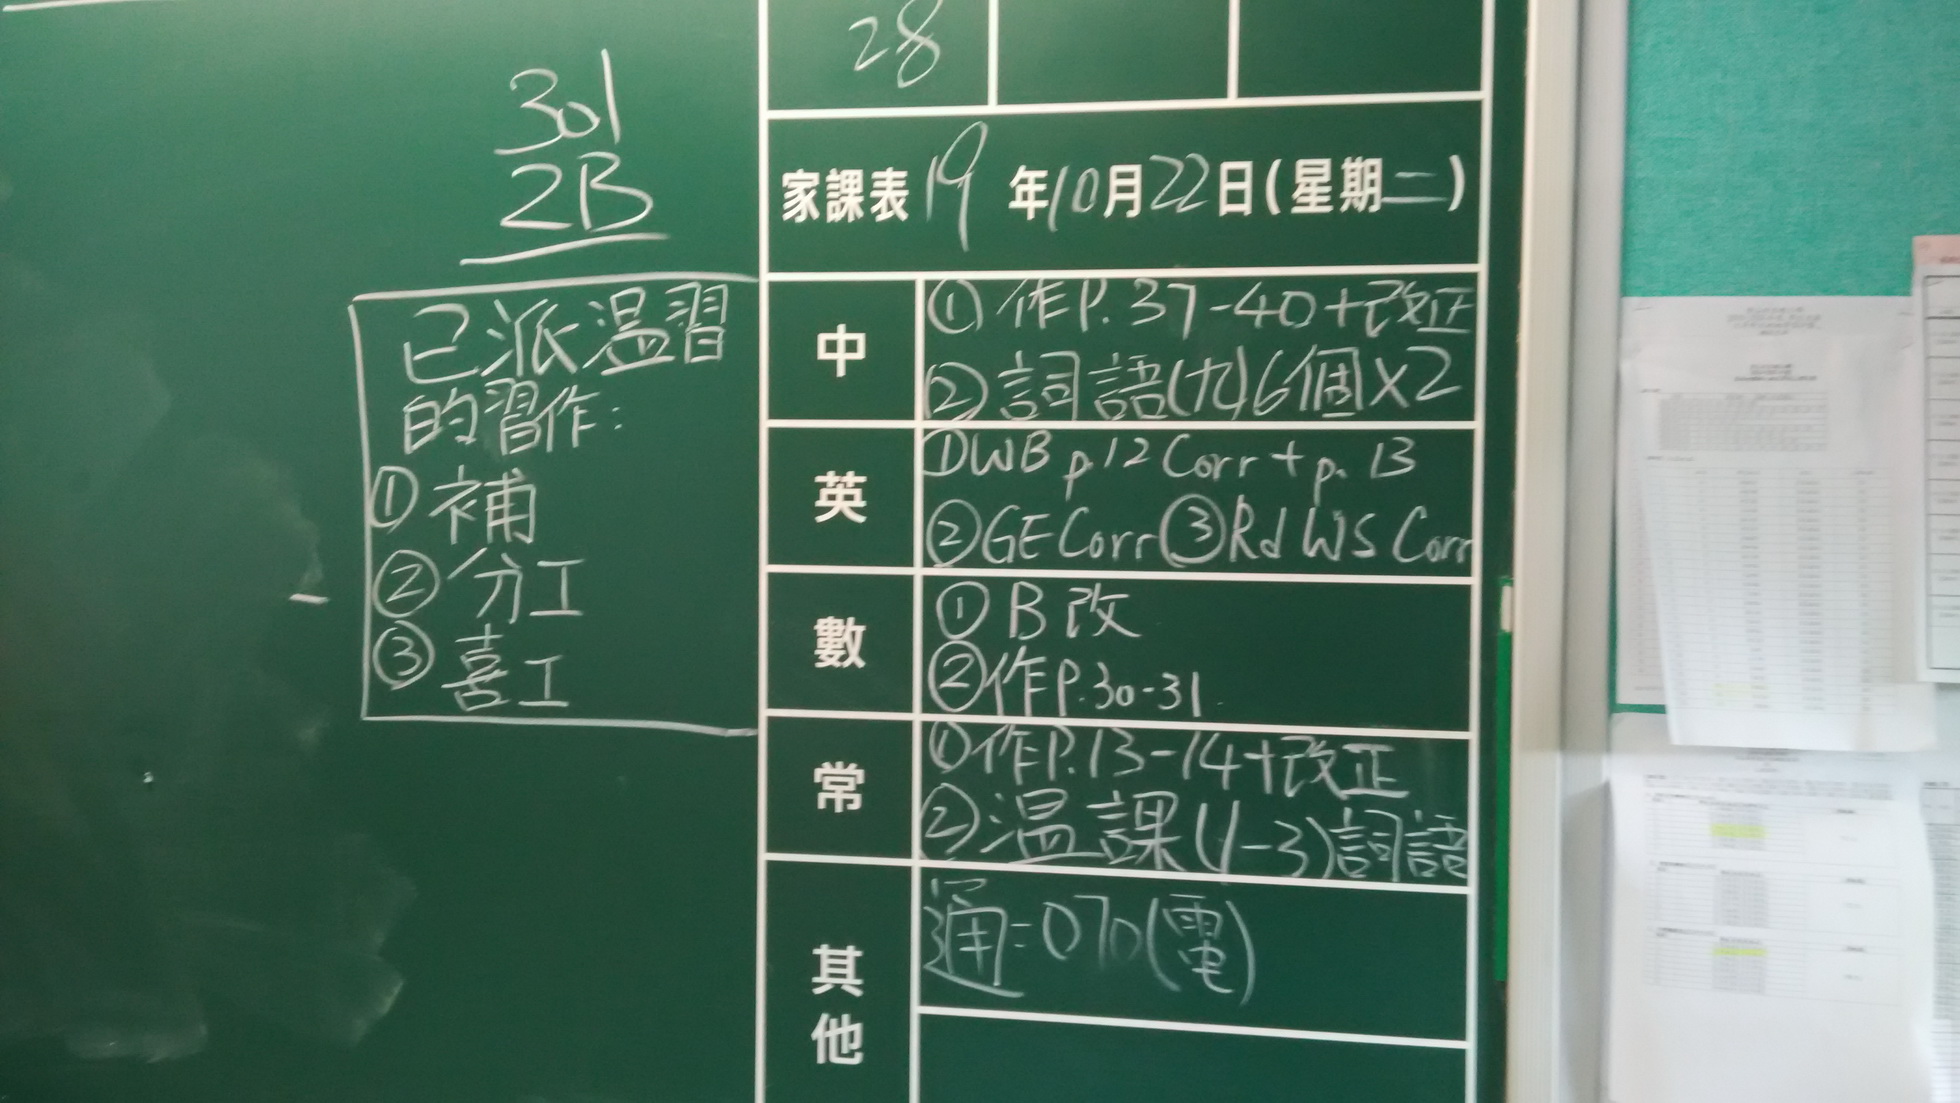 28
301
2B
家課表 19 年 10 月 22 日 (星期二)
已派温習
的習作:
① 補
② 分工
③ 喜工
中
① 作P.37-40+改正
② 詞語(九)6個×2
英
①WB p.12 Corr + p. 13
②GE Corr ③Rd WS Corr
數
① B 改
②作P.30-31.
常
①作P.13-14+改正
②温課(1-3)詞語
其他
通:070(電)